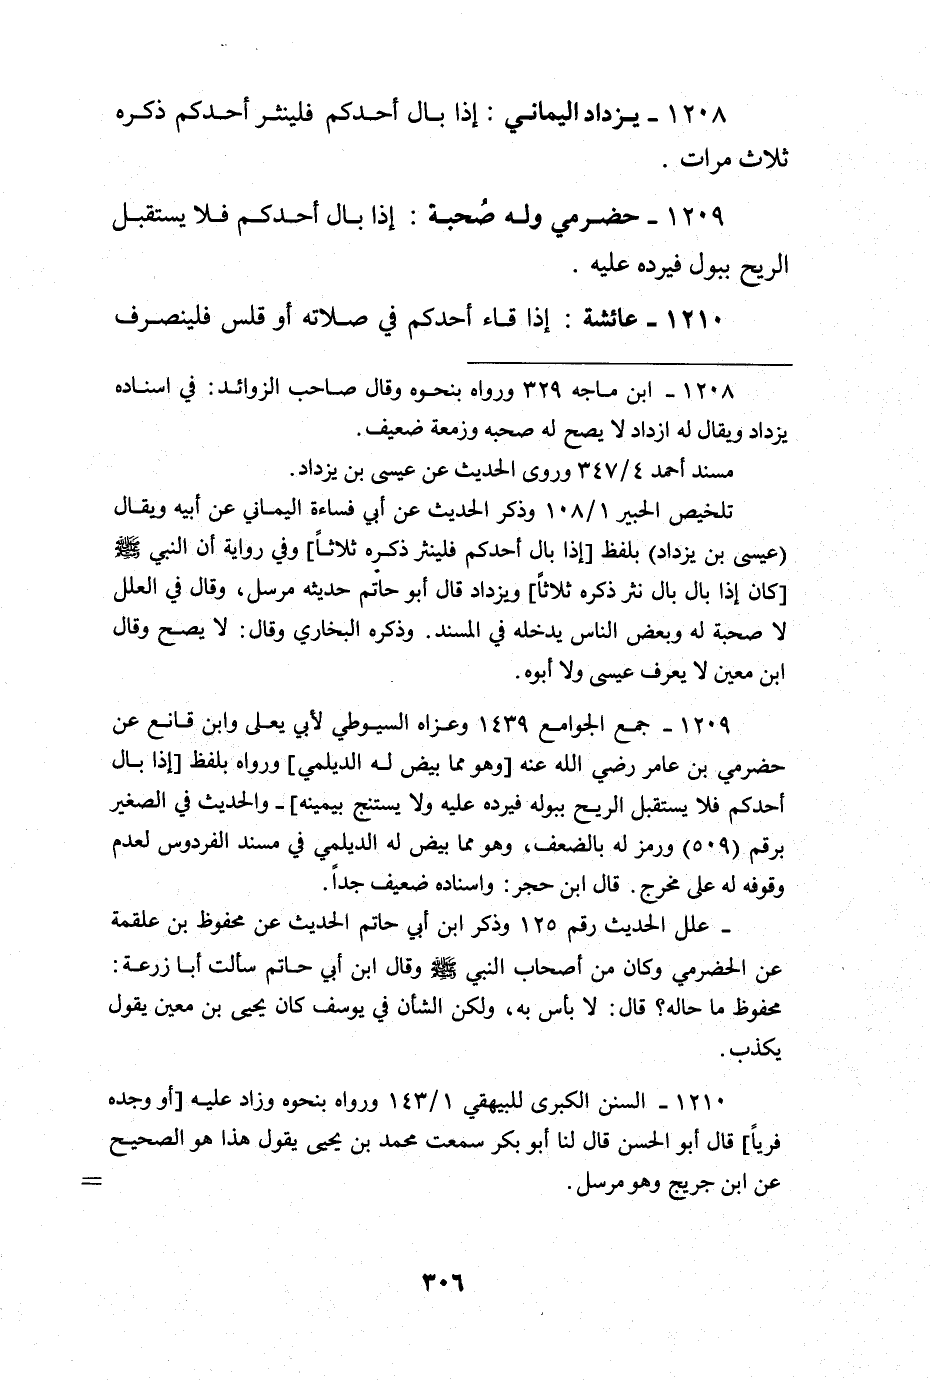 ١٢٠٨ ـ يزداد اليماني : إذا بال أحدكم فلينثر أحدكم ذكره
ثلاث مرات .
١٢٠٩ ـ حضرمي وله صُحبة : إذا بال أحدكم فلا يستقبل
الريح ببول فيرده عليه .
١٢١٠ ـ عائشة : إذا قاء أحدكم في صلاته أو قلس فلينصرف
١٢٠٨ ـ ابن ماجه ٣٢٩ ورواه بنحوه وقال صاحب الزوائد: في اسناده
يزداد ويقال له ازداد لا يصح له صحبه وزمعة ضعيف.
مسند أحمد ٣٤٧/٤ وروى الحديث عن عيسى بن يزداد.
تلخيص الحبير ١٠٨/١ وذكر الحديث عن أبي فساءة اليماني عن أبيه ويقال
(عيسى بن يزداد) بلفظ [إذا بال أحدكم فلينثر ذكره ثلاثاً] وفي رواية أن النبي ﷺ
[كان إذا بال بال نثر ذكره ثلاثاً] ويزداد قال أبو حاتم حديثه مرسل، وقال في العلل
لا صحبة له وبعض الناس يدخله في المسند. وذكره البخاري وقال: لا يصح وقال
ابن معين لا يعرف عيسى ولا أبوه.
١٢٠٩ ـ جمع الجوامع ١٤٣٩ وعزاه السيوطي لأبي يعلى وابن قانع عن
حضرمي بن عامر رضي الله عنه [وهو مما بيض له الديلمي] ورواه بلفظ [إذا بال
أحدكم فلا يستقبل الريح ببوله فيرده عليه ولا يستنج بيمينه] ـ والحديث في الصغير
برقم (٥٠٩) ورمز له بالضعف، وهو مما بيض له الديلمي في مسند الفردوس لعدم
وقوفه له على مخرج. قال ابن حجر: واسناده ضعيف جداً.
ـ علل الحديث رقم ١٢٥ وذكر ابن أبي حاتم الحديث عن محفوظ بن علقمة
عن الحضرمي وكان من أصحاب النبي ﷺ وقال ابن أبي حاتم سألت أبا زرعة:
محفوظ ما حاله؟ قال: لا بأس به، ولكن الشأن في يوسف كان يحيى بن معين يقول
يكذب.
١٢١٠ ـ السنن الكبرى للبيهقي ١٤٣/١ ورواه بنحوه وزاد عليه [أو وجده
فرياً] قال أبو الحسن قال لنا أبو بكر سمعت محمد بن يحيى يقول هذا هو الصحيح
عن ابن جريج وهو مرسل. =
٣٠٦